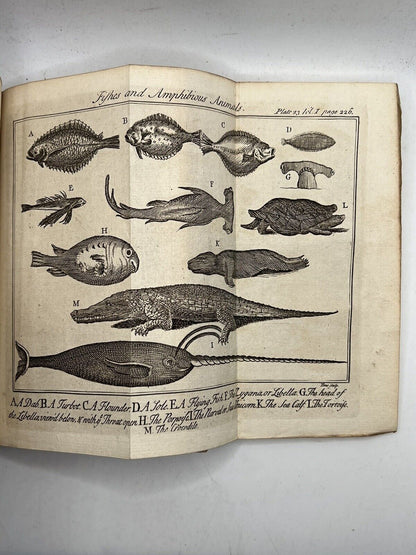 Fishes and Amphibious Animals.
Plate 23 Vol. I page 226.
A
B
C
D
G
E
F
L
H
K
M
I
A. A Dab. B. A Turbot. C. A Flounder. D. A Sole. E. A Flying Fish. F. The Zygæna, or Libella. G. The head of
the Libella, view'd below, & with yᵉ Throat open. H. The Porposs. I. The Narval or Sea Unicorn. K. The Sea Calf. L. The Tortoise.
M. The Crocodile.